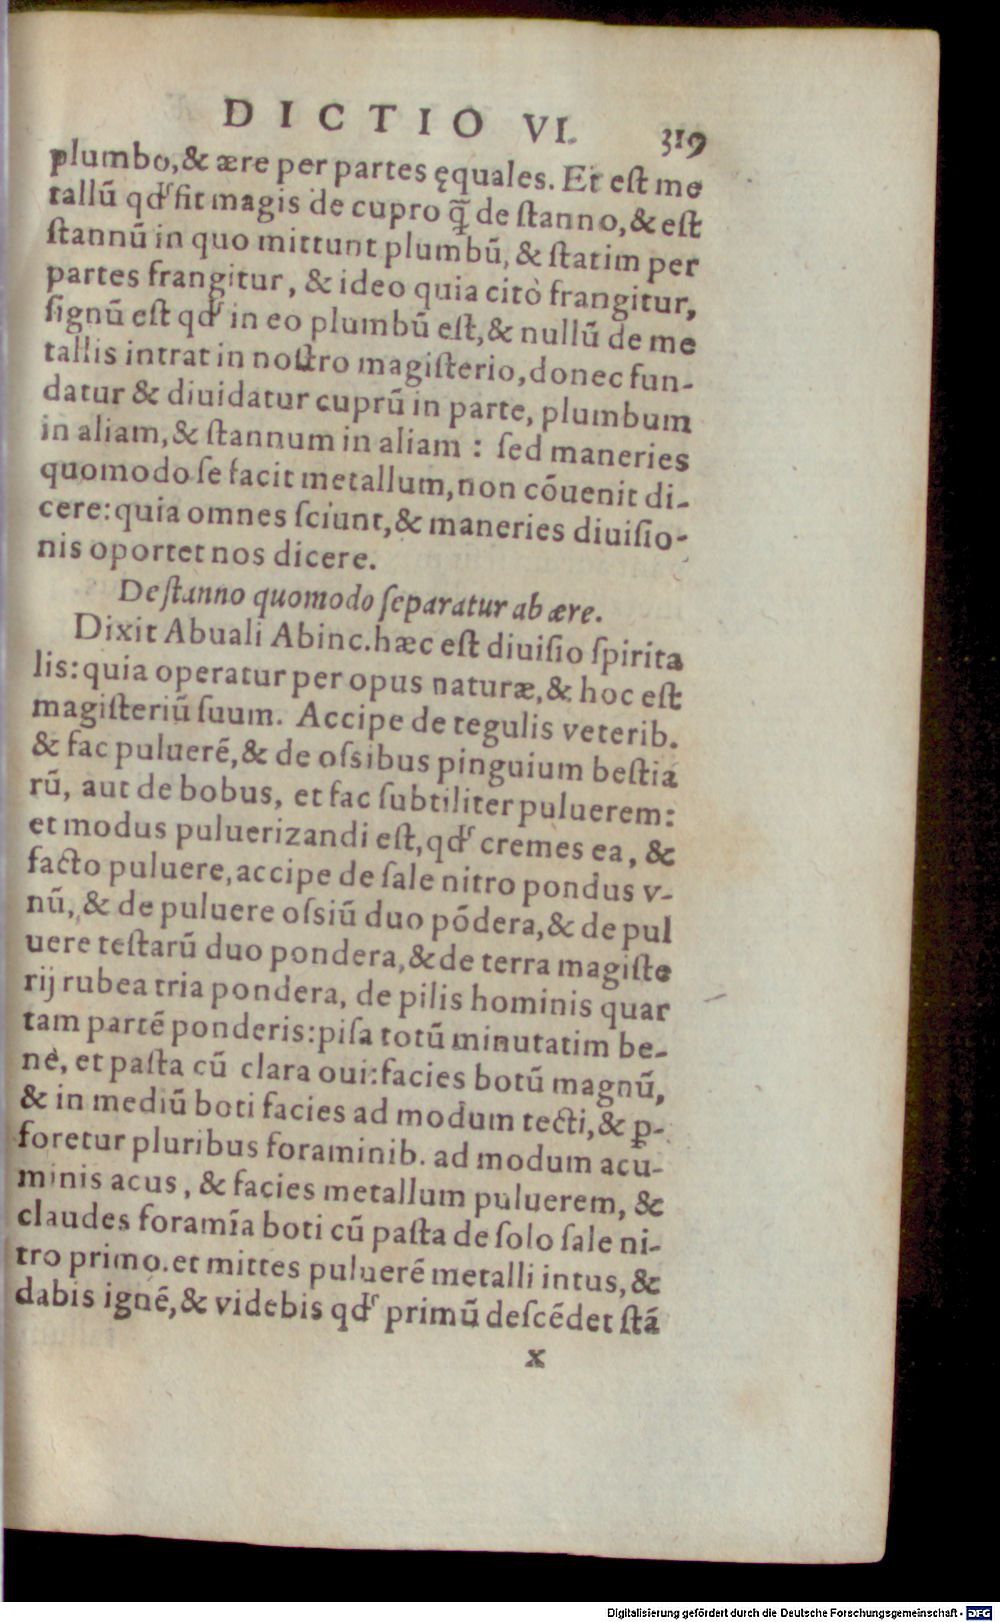 DICTIO VI. 319
plumbo, & ære per partes ęquales. Et est me
tallū qđ fit magis de cupro q̄ de stanno, & est
stannū in quo mittunt plumbū, & statim per
partes frangitur, & ideo quia citò frangitur,
signū est qđ in eo plumbū est, & nullū de me
tallis intrat in nostro magisterio, donec fun-
datur & diuidatur cuprū in parte, plumbum
in aliam, & stannum in aliam : sed maneries
quomodo se facit metallum, non cōuenit di-
cere: quia omnes sciunt, & maneries diuisio-
nis oportet nos dicere.
De stanno quomodo separatur ab ære.
Dixit Abuali Abinc. hæc est diuisio spirita
lis: quia operatur per opus naturæ, & hoc est
magisteriū suum. Accipe de tegulis veterib.
& fac puluerē, & de ossibus pinguium bestia
rū, aut de bobus, et fac subtiliter puluerem:
et modus puluerizandi est, qđ cremes ea, &
facto puluere, accipe de sale nitro pondus v-
nū, & de puluere ossiū duo pōdera, & de pul
uere testarū duo pondera, & de terra magiste
rij rubea tria pondera, de pilis hominis quar
tam partē ponderis: pisa totū minutatim be-
nè, et pasta cū clara oui: facies botū magnū,
& in mediū boti facies ad modum tecti, & ꝑ-
foretur pluribus foraminib. ad modum acu-
minis acus, & facies metallum puluerem, &
claudes foramīa boti cū pasta de solo sale ni-
tro primo. et mittes puluerē metalli intus, &
dabis ignē, & videbis qđ primū descēdet stā
x
Digitalisierung gefördert durch die Deutsche Forschungsgemeinschaft - DFG